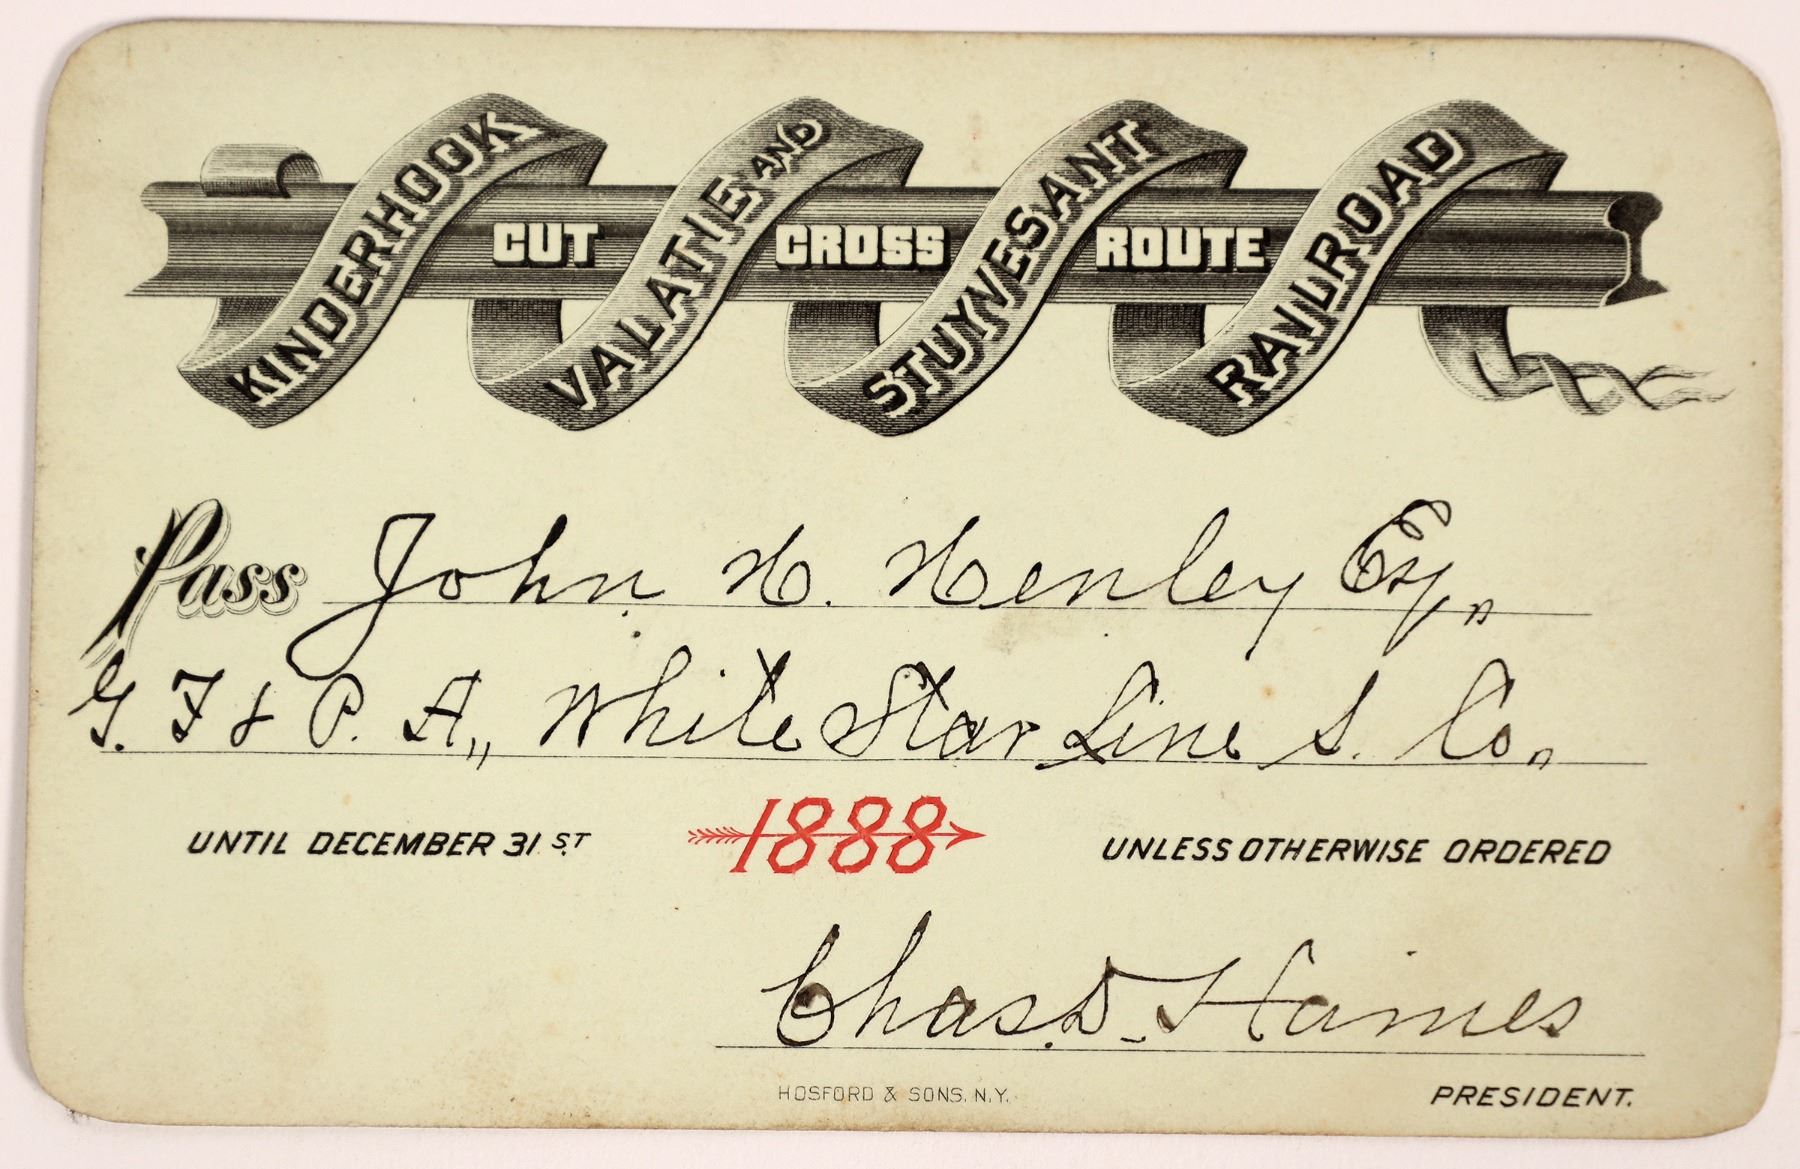 KINDERHOOK VALATIE AND STUYVESANT RAILROAD
CUT CROSS ROUTE
Pass John H. Henley Esq.,
G. F & P. A., White Star Line S. Co.,
UNTIL DECEMBER 31ST. 1888 UNLESS OTHERWISE ORDERED
Chas. D. Haines
HOSFORD & SONS, N.Y. PRESIDENT.